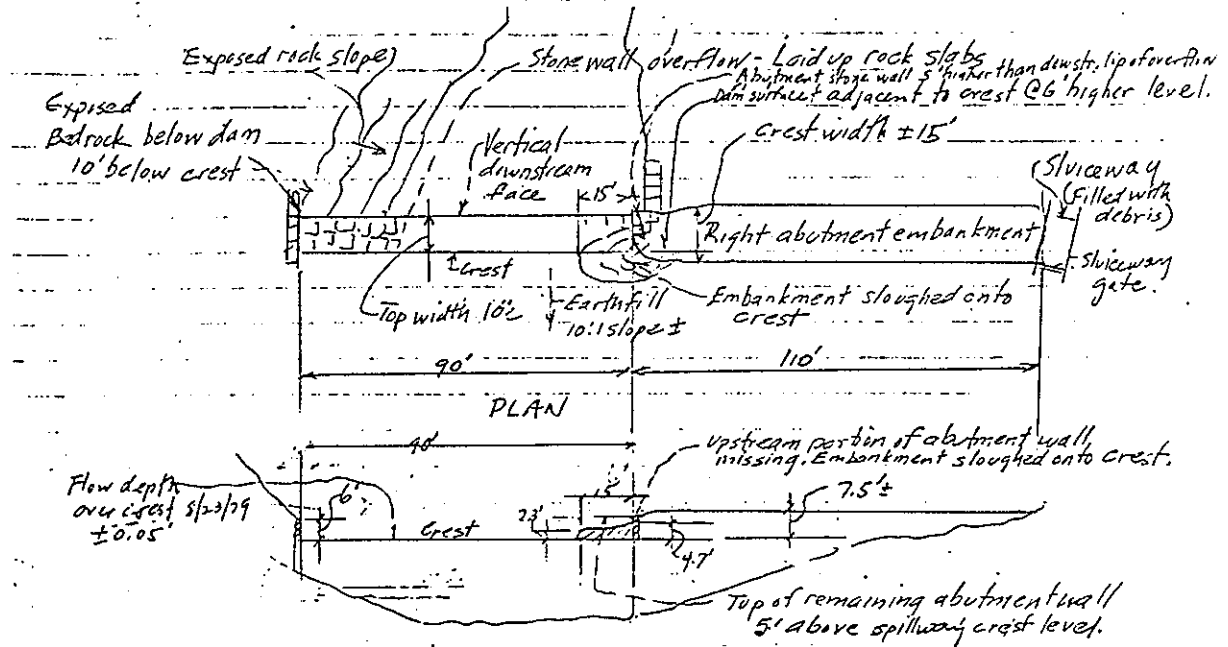 Exposed rock slope
Stone wall overflow - Laid up rock slabs
Abutment stone wall 5' higher than downstr. lip of overflow
Dam surface adjacent to crest @ 6' higher level.
Exposed
Bedrock below dam
10' below crest
Vertical
downstream
face
15'
Crest width ±15'
Sluiceway
(filled with
debris)
Right abutment embankment
Crest
Sluiceway
gate.
Top width
Earthfill
10:1 slope ±
Embankment sloughed onto
crest
90'
110'
PLAN
90'
Upstream portion of abutment wall
missing. Embankment sloughed onto crest.
Flow depth
over crest 5/23/79
±0.05'
6'
Crest
7.5'±
4.7'
Top of remaining abutment wall
5' above spillway crest level.